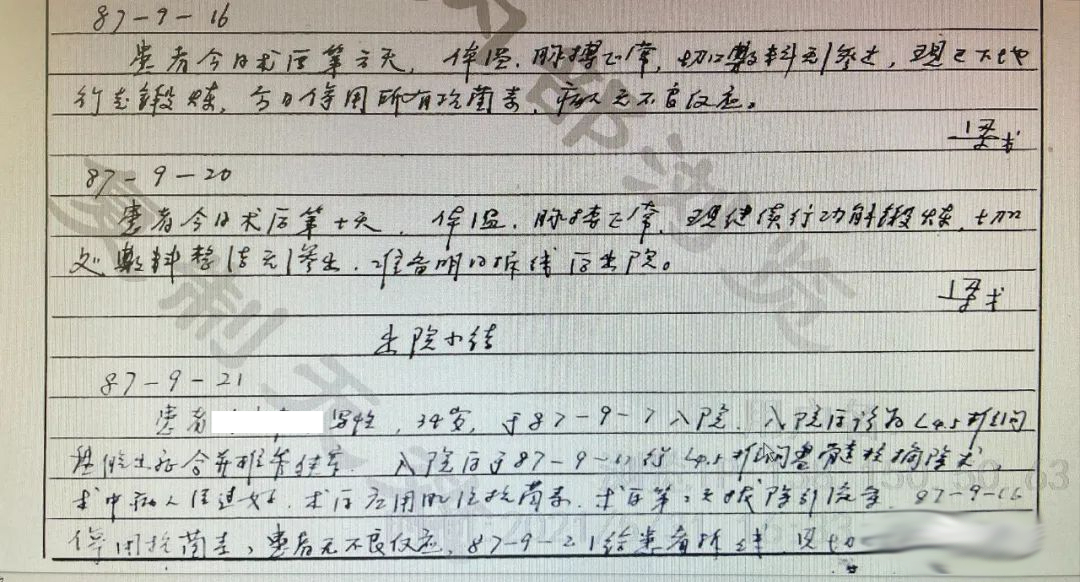 87-9-16
患者今日术后第六天，体温，脉搏正常，切口敷料无渗出，现已下地
行走锻炼，今日停用所有抗菌素，病人无不良反应。
87-9-20
患者今日术后第十天，体温，脉搏正常，现继续行功能锻炼，切口
处敷料整洁无渗出，准备明日拆线后出院。
出院小结
87-9-21
患者 男性，34岁，于87-9-7入院，入院后诊为L4.5椎间
盘脱出症合并椎管狭窄，入院后于87-9-10行L4.5椎间盘髓核摘除术，
术中病人经过好，术后应用抗菌素，术后第二天拔除引流条，87-9-16
停用抗菌素，患者无不良反应，87-9-21给患者拆线，见切
复制无效
部浏览